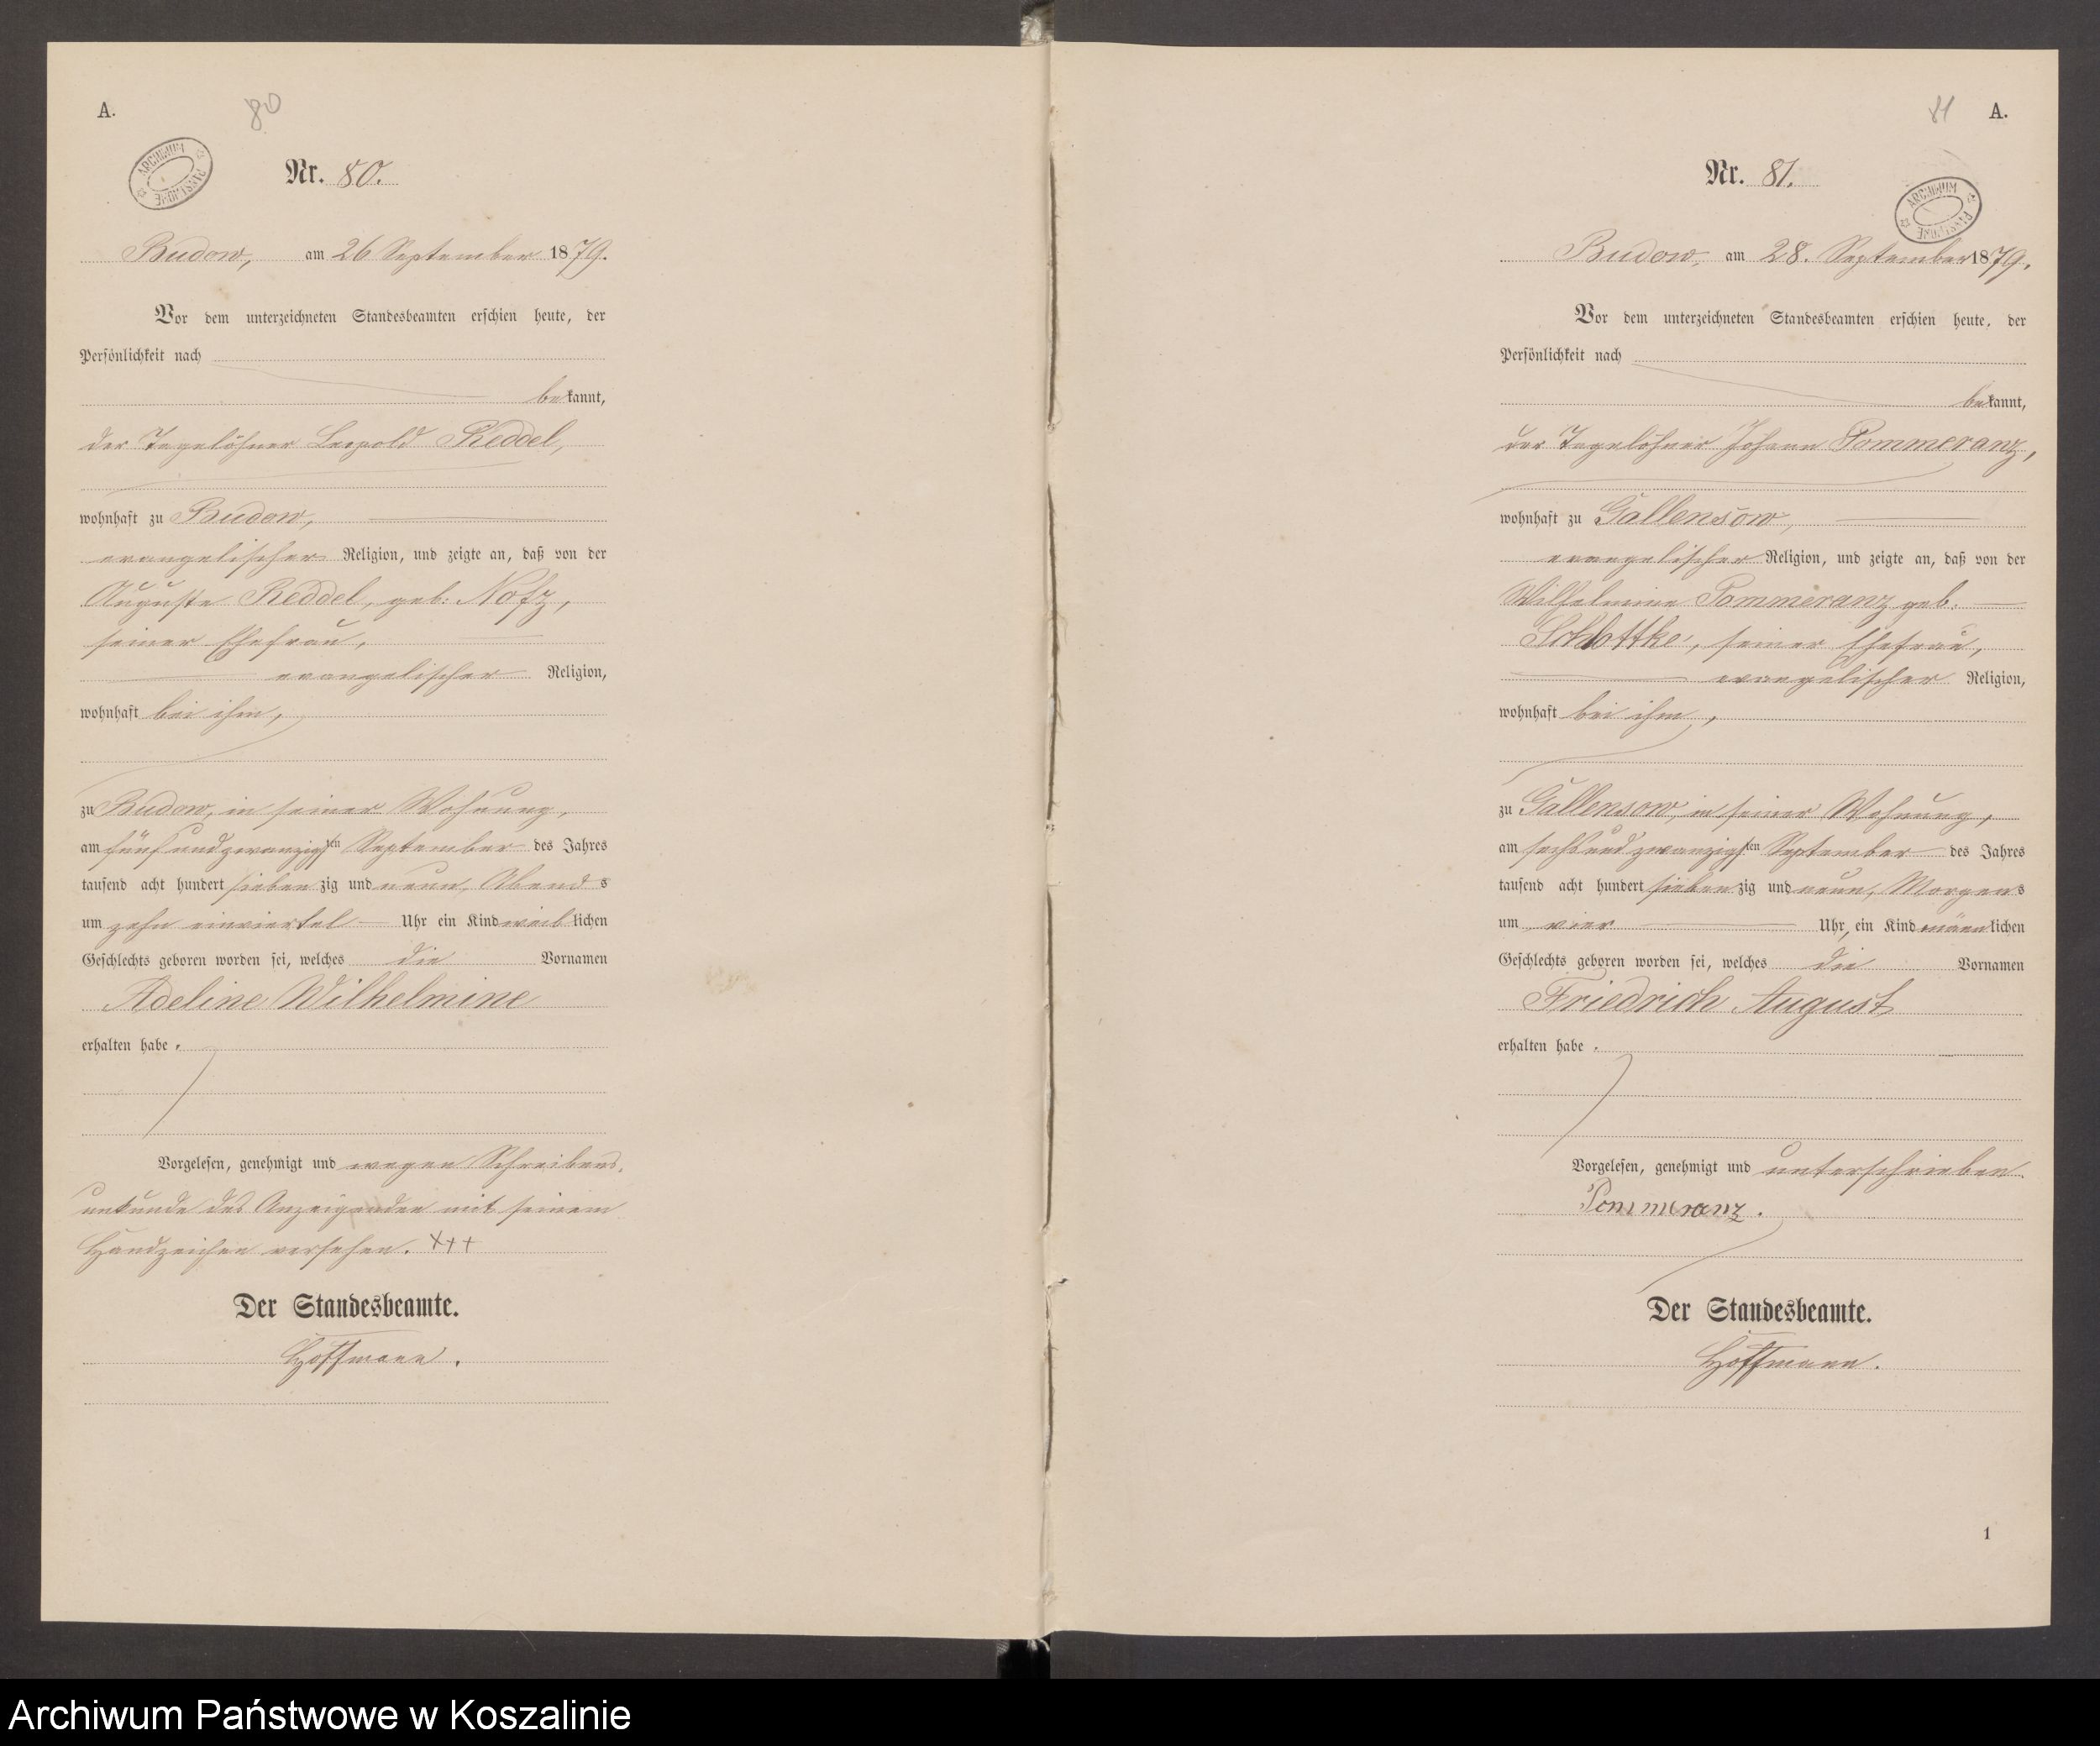 A.
80
ARCHIWUM PAŃSTWOWE
Nr. 80.
Budow, am 26 September 1879.
Vor dem unterzeichneten Standesbeamten erschien heute, der
Persönlichkeit nach
bekannt,
der Tagelöhner Leopold Reddel,
wohnhaft zu Budow,
evangelischer Religion, und zeigte an, daß von der
Auguste Reddel, geb:
seiner Ehefrau,
evangelischer Religion,
wohnhaft bei ihm,
zu Budow, in seiner Wohnung,
am fünf und zwanzigsten September des Jahres
tausend acht hundert siebenzig und neun, Abends
um zehn einviertel Uhr ein Kind weiblichen
Geschlechts geboren worden sei, welches die Vornamen
Adeline Wilhelmine
erhalten habe.
Vorgelesen, genehmigt und wegen Schreibens,
unkunde des Anzeigenden mit seinem
Handzeichen versehen. +++
Der Standesbeamte.
Hoffmann.
81 A.
ARCHIWUM PAŃSTWOWE
Nr. 81.
Budow, am 28. September 1879.
Vor dem unterzeichneten Standesbeamten erschien heute, der
Persönlichkeit nach
bekannt,
der Tagelöhner Johann Pommeranz,
wohnhaft zu Gallensow,
evangelischer Religion, und zeigte an, daß von der
Wilhelmine Pommeranz geb.
Schlottke, seiner Ehefrau,
evangelischer Religion,
wohnhaft bei ihm,
zu Gallensow, in seiner Wohnung,
am sechs und zwanzigsten September des Jahres
tausend acht hundert siebenzig und neun, Morgens
um vier Uhr, ein Kind männlichen
Geschlechts geboren worden sei, welches die Vornamen
Friedrich August
erhalten habe.
Vorgelesen, genehmigt und unterschrieben.
Pommeranz.
Der Standesbeamte.
Hoffmann.
1
Archiwum Państwowe w Koszalinie